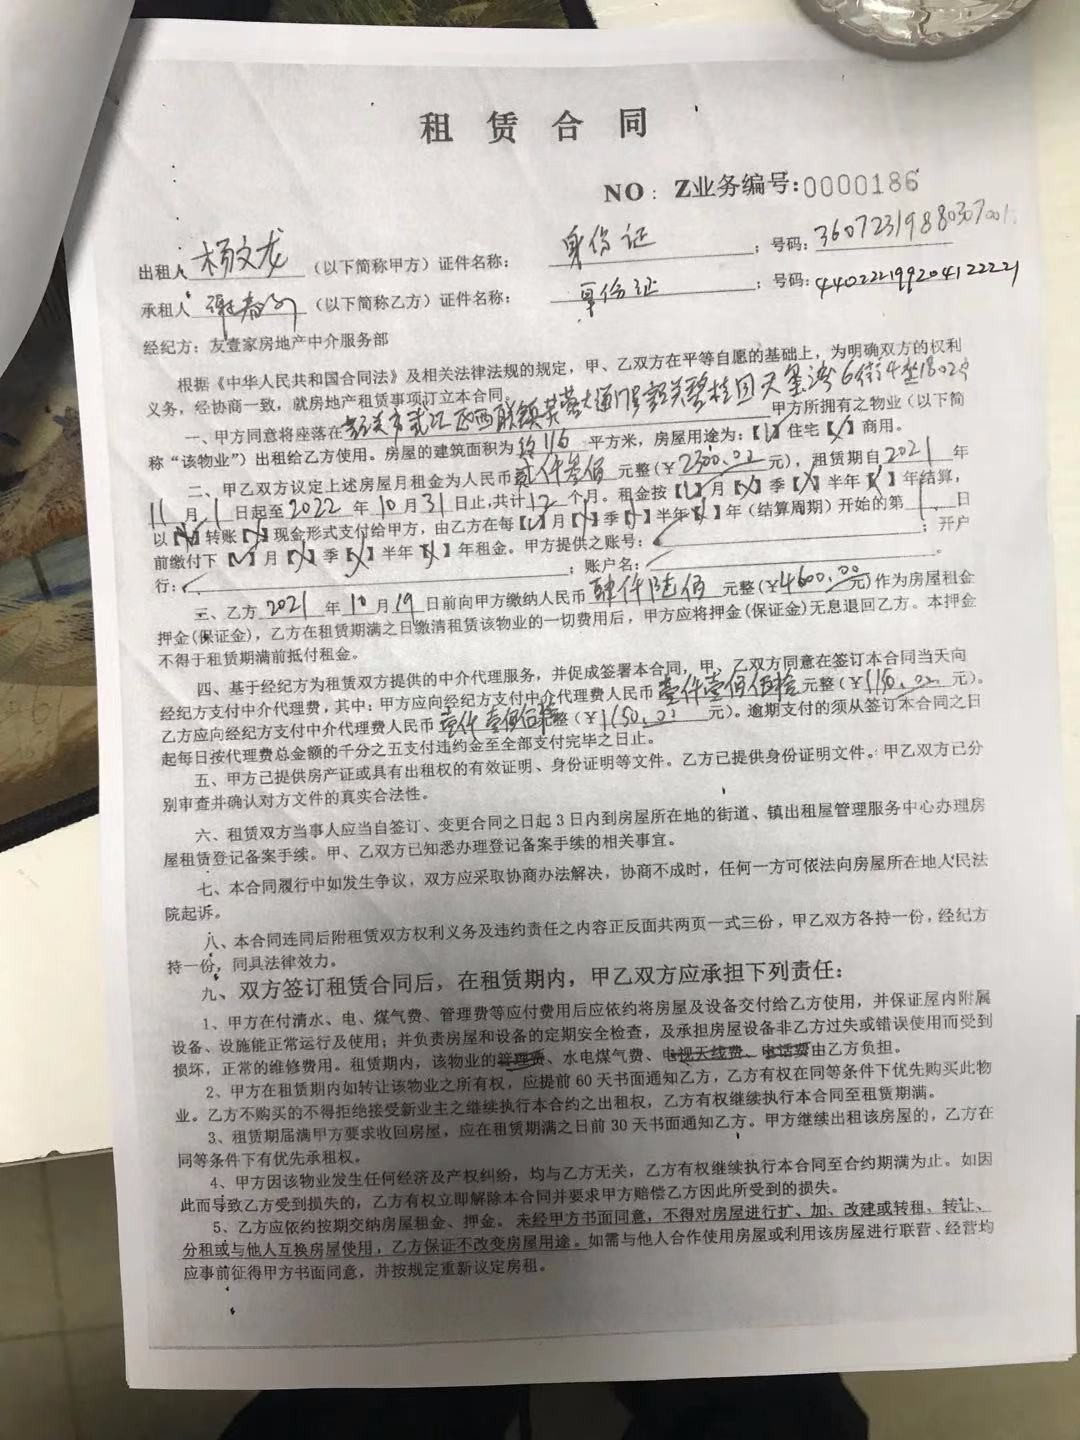 租赁合同
NO：Z业务编号:0000186
出租人 杨文龙 （以下简称甲方）证件名称： 身份证 ；号码：36072319880307001
承租人 （以下简称乙方）证件名称： 身份证 ；号码：440222199204122221
经纪方：友壹家房地产中介服务部
根据《中华人民共和国合同法》及相关法律法规的规定，甲、乙双方在平等自愿的基础上，为明确双方的权利
义务，经协商一致，就房地产租赁事项订立本合同。
一、甲方同意将座落在韶关市武江区西联镇芙蓉大道 韶关碧桂园天玺湾6街4座1802号 甲方所拥有之物业（以下简
称“该物业”）出租给乙方使用。房屋的建筑面积为约116 平方米，房屋用途为：【√】住宅【×】商用。
二、甲乙双方议定上述房屋月租金为人民币贰仟叁佰 元整（￥2300.00 元），租赁期自2021 年
11 月 1 日起至2022 年 10 月 31 日止,共计12 个月。租金按【√】月【×】季【×】半年【×】年结算，
以【 】转账【 】现金形式支付给甲方，由乙方在每【√】月【×】季【×】半年【×】年（结算周期）开始的第 1 日
前缴付下【√】月【×】季【×】半年【×】年租金。甲方提供之账号： ；开户
行： ；账户名： 。
三、乙方 2021 年 10 月 19 日前向甲方缴纳人民币 肆仟陆佰 元整（￥4600.00 元)作为房屋租金
押金(保证金)，乙方在租赁期满之日缴清租赁该物业的一切费用后，甲方应将押金(保证金)无息退回乙方。本押金
不得于租赁期满前抵付租金。
四、基于经纪方为租赁双方提供的中介代理服务，并促成签署本合同，甲、乙双方同意在签订本合同当天向
经纪方支付中介代理费，其中：甲方应向经纪方支付中介代理费人民币 壹仟壹佰伍拾元整（￥1150.00 元）。
乙方应向经纪方支付中介代理费人民币 壹仟壹佰伍拾元整（￥1150.00 元）。逾期支付的须从签订本合同之日
起每日按代理费总金额的千分之五支付违约金至全部支付完毕之日止。
五、甲方已提供房产证或具有出租权的有效证明、身份证明等文件。乙方已提供身份证明文件。甲乙双方已分
别审查并确认对方文件的真实合法性。
六、租赁双方当事人应当自签订、变更合同之日起 3 日内到房屋所在地的街道、镇出租屋管理服务中心办理房
屋租赁登记备案手续。甲、乙双方已知悉办理登记备案手续的相关事宜。
七、本合同履行中如发生争议，双方应采取协商办法解决，协商不成时，任何一方可依法向房屋所在地人民法
院起诉。
八、本合同连同后附租赁双方权利义务及违约责任之内容正反面共两页一式三份，甲乙双方各持一份，经纪方
持一份，同具法律效力。
九、双方签订租赁合同后，在租赁期内，甲乙双方应承担下列责任：
1、甲方在付清水、电、煤气费、管理费等应付费用后应依约将房屋及设备交付给乙方使用，并保证屋内附属
设备、设施能正常运行及使用；并负责房屋和设备的定期安全检查，及承担房屋设备非乙方过失或错误使用而受到
损坏，正常的维修费用。租赁期内，该物业的管理费、水电煤气费、电视天线费、电话费由乙方负担。
2、甲方在租赁期内如转让该物业之所有权，应提前 60 天书面通知乙方，乙方有权在同等条件下优先购买此物
业。乙方不购买的不得拒绝接受新业主之继续执行本合约之出租权，乙方有权继续执行本合同至租赁期满。
3、租赁期届满甲方要求收回房屋，应在租赁期满之日前 30 天书面通知乙方。甲方继续出租该房屋的，乙方在
同等条件下有优先承租权。
4、甲方因该物业发生任何经济及产权纠纷，均与乙方无关，乙方有权继续执行本合同至合约期满为止。如因
此而导致乙方受到损失的，乙方有权立即解除本合同并要求甲方赔偿乙方因此所受到的损失。
5、乙方应依约按期交纳房屋租金、押金。未经甲方书面同意，不得对房屋进行扩、加、改建或转租、转让、
分租或与他人互换房屋使用，乙方保证不改变房屋用途。如需与他人合作使用房屋或利用该房屋进行联营、经营均
应事前征得甲方书面同意，并按规定重新议定房租。